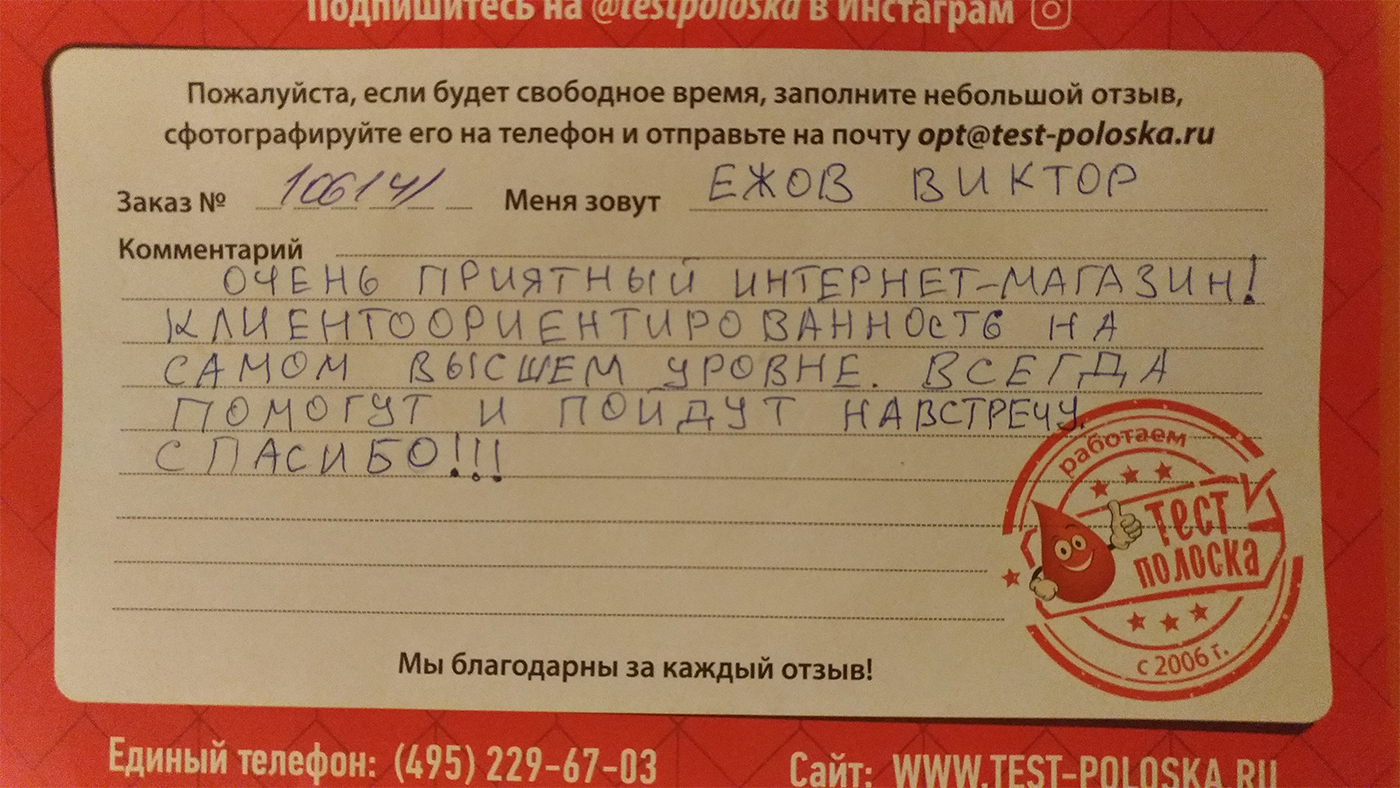 Подпишитесь на @testpoloska в Инстаграм
Пожалуйста, если будет свободное время, заполните небольшой отзыв,
сфотографируйте его на телефон и отправьте на почту opt@test-poloska.ru
Заказ № Меня зовут ЕЖОВ ВИКТОР
Комментарий
ОЧЕНЬ ПРИЯТНЫЙ ИНТЕРНЕТ-МАГАЗИН!
КЛИЕНТООРИЕНТИРОВАННОСТЬ НА
САМОМ ВЫСШЕМ УРОВНЕ. ВСЕГДА
ПОМОГУТ И ПОЙДУТ НАВСТРЕЧУ.
СПАСИБО!!!
работаем
ТЕСТ
ПОЛОСКА
с 2006 г.
Мы благодарны за каждый отзыв!
Единый телефон: (495) 229-67-03 Сайт: WWW.TEST-POLOSKA.RU